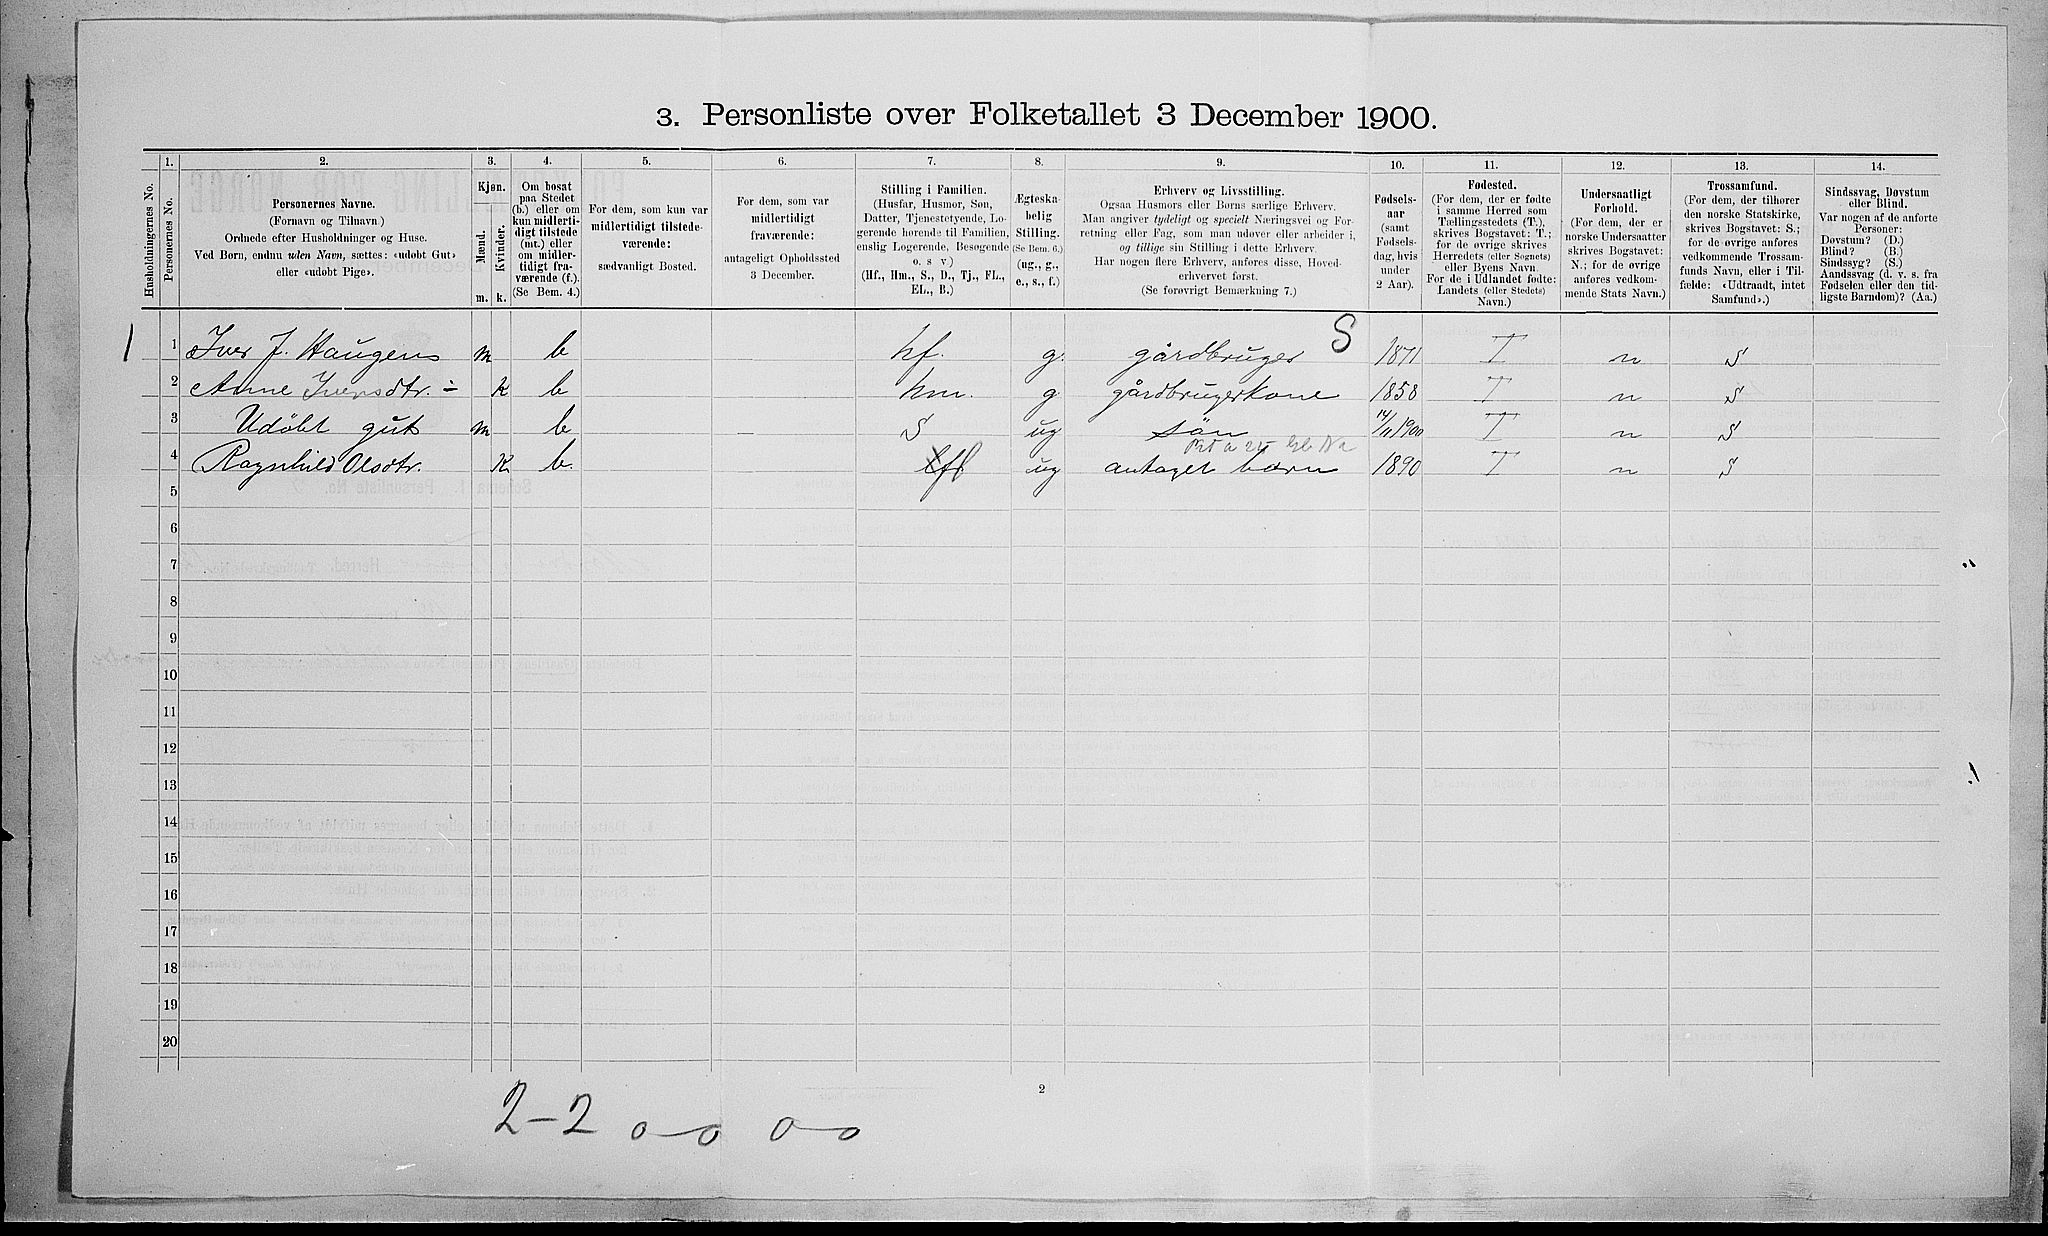 3. Personliste over Folketallet 3 December 1900.
1. 2. 3. 4. 5. 6. 7. 8. 9. 10. 11. 12. 13. 14.
Husholdningernes No.
Personernes No.
Personernes Navne.
(Fornavn og Tilnavn.)
Ordnede efter Husholdninger og Huse.
Ved Børn, endnu uden Navn, sættes: «udøbt Gut»
eller «udøbt Pige».
Kjøn.
Mænd.
Kvinder.
m. k.
Om bosat
paa Stedet
(b.) eller om
kun midlerti-
digt tilstede
(mt.) eller
om midler-
tidigt fra-
værende (f.).
(Se Bem. 4.)
For dem, som kun var
midlertidigt tilstede-
værende:
sædvanligt Bosted.
For dem, som var
midlertidigt
fraværende:
antageligt Opholdssted
3 December.
Stilling i Familien.
(Husfar, Husmor, Søn,
Datter, Tjenestetyende, Lo-
gerende hørende til Familien,
enslig Logerende, Besøgende
o. s v.)
(Hf., Hm., S., D., Tj., FL.,
EL., B.)
Ægteska-
belig
Stilling.
(Se Bem. 6.)
(ug., g.,
e., s., f.)
Erhverv og Livsstilling.
Ogsaa Husmors eller Børns særlige Erhverv.
Man angiver tydeligt og specielt Næringsvei og For-
retning eller Fag, som man udøver eller arbeider i,
og tillige sin Stilling i dette Erhverv.
Har nogen flere Erhverv, anføres disse, Hoved-
erhvervet først.
(Se forøvrigt Bemærkning 7.)
Fødsels-
aar
(samt
Fødsels-
dag, hvis
under
2 Aar).
Fødested.
(For dem, der er fødte
i samme Herred som
Tællingsstedets (T.),
skrives Bogstavet: T.;
for de øvrige skrives
Herredets (eller Sognets)
eller Byens Navn.
For de i Udlandet fødte:
Landets (eller Stedets)
Navn.)
Undersaatligt
Forhold.
(For dem, der er
norske Undersaatter
skrives Bogstavet:
N.; for de øvrige
anføres vedkom-
mende Stats Navn.)
Trossamfund.
(For dem, der tilhører
den norske Statskirke,
skrives Bogstavet: S.;
for de øvrige anføres
vedkommende Trossam-
funds Navn, eller i Til-
fælde: «Udtraadt, intet
Samfund».)
Sindssvag, Døvstum
eller Blind.
Var nogen af de anførte
Personer:
Døvstum? (D.)
Blind? (B.)
Sindssyg? (S.)
Aandssvag (d. v. s. fra
Fødselen eller den tid-
ligste Barndom)? (Aa.)
S
1 1 Iver J. Haugen m b hf. g. gårdbruger 1871 T n S
2 Anne Iversdtr. ÷ k b hm. g gårdbrugerkone 1858 T n S
3 Udøbt gut m b S ug søn 14/11 1900 T n S
4 Ragnhild Olsdtr. K b. fl ug antaget barn 1890 T n S
5
6
7
8
9
10
11
12
13
14
15
16
17
18
19
20
2
2-2 0-0 0-0